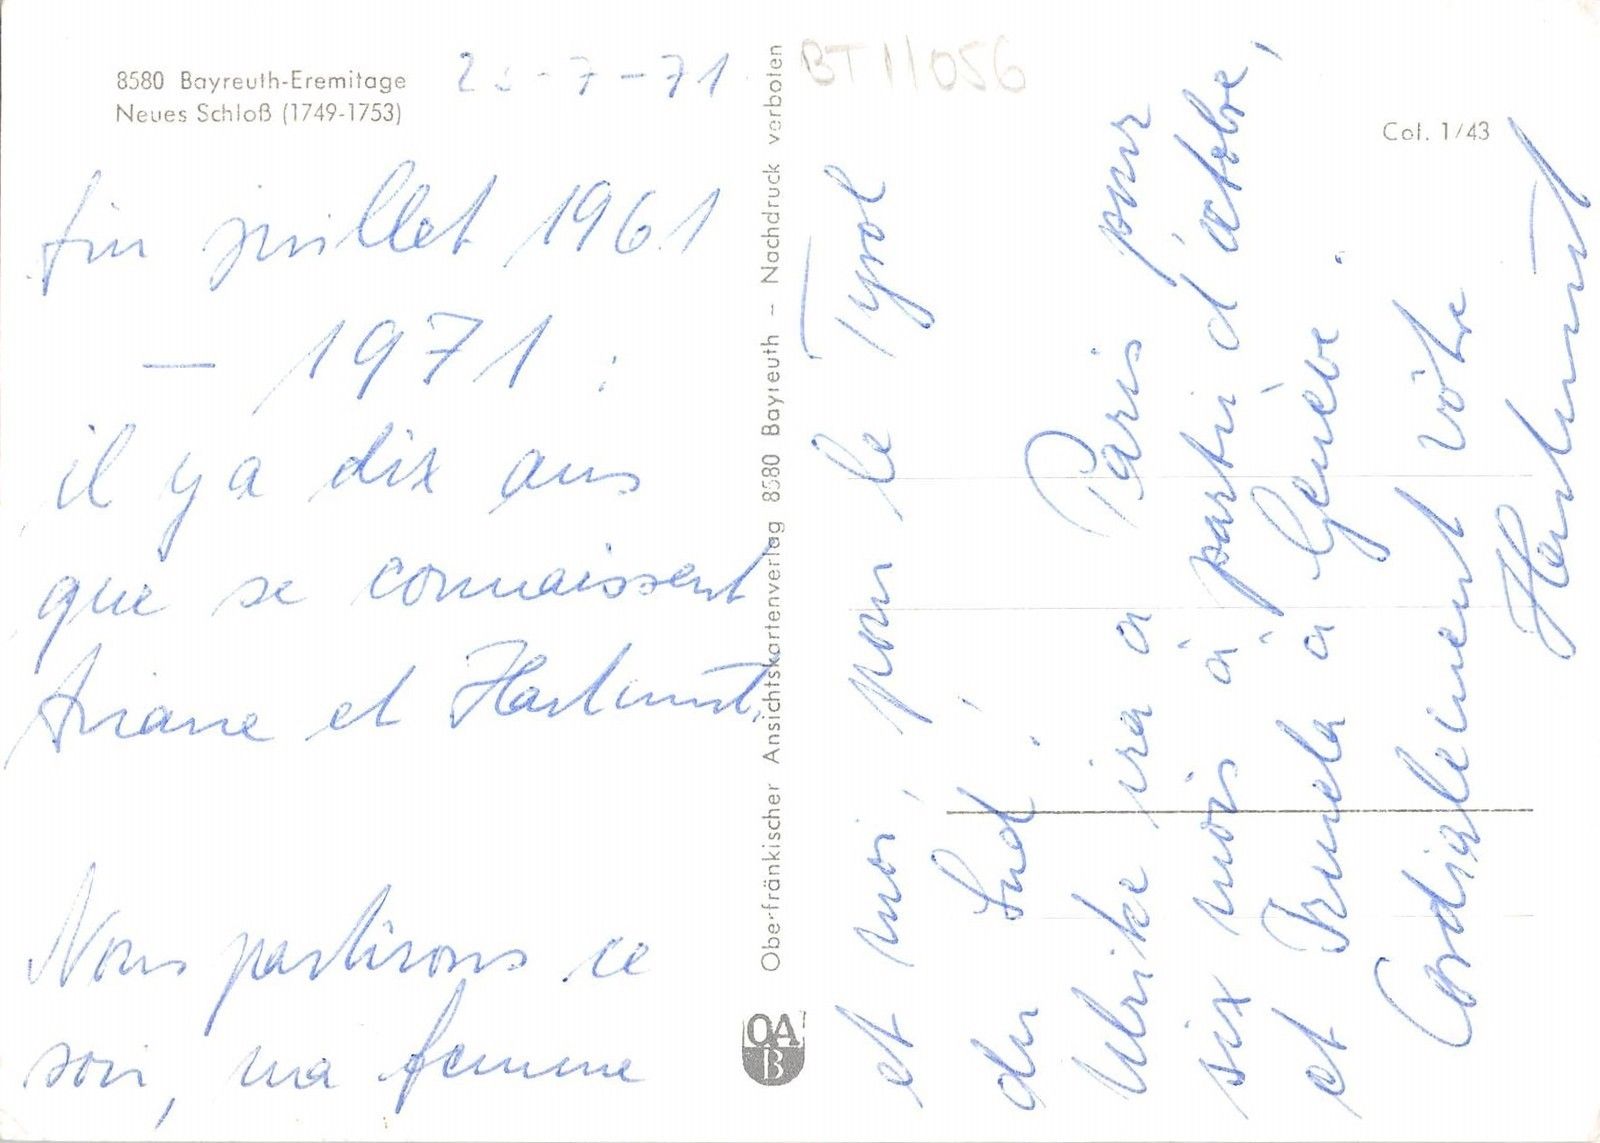 8580 Bayreuth-Eremitage
Neues Schloß (1749-1753)
-7-71
BT11056
Col. 1/43
fin juillet 1961
— 1971 :
il y a dix ans
que se connaissent
Ariane et Hartmut,
Nous partirons ce
soir, ma femme
Oberfränkischer Ansichtskartenverlag 8580 Bayreuth – Nachdruck verboten
OA
B
et moi, pour le Tyrol
du Sud.
Ulrike ira à Paris pour
six mois à partir d'octobre,
et à Genève.
Cordialement vôtre
Hartmut